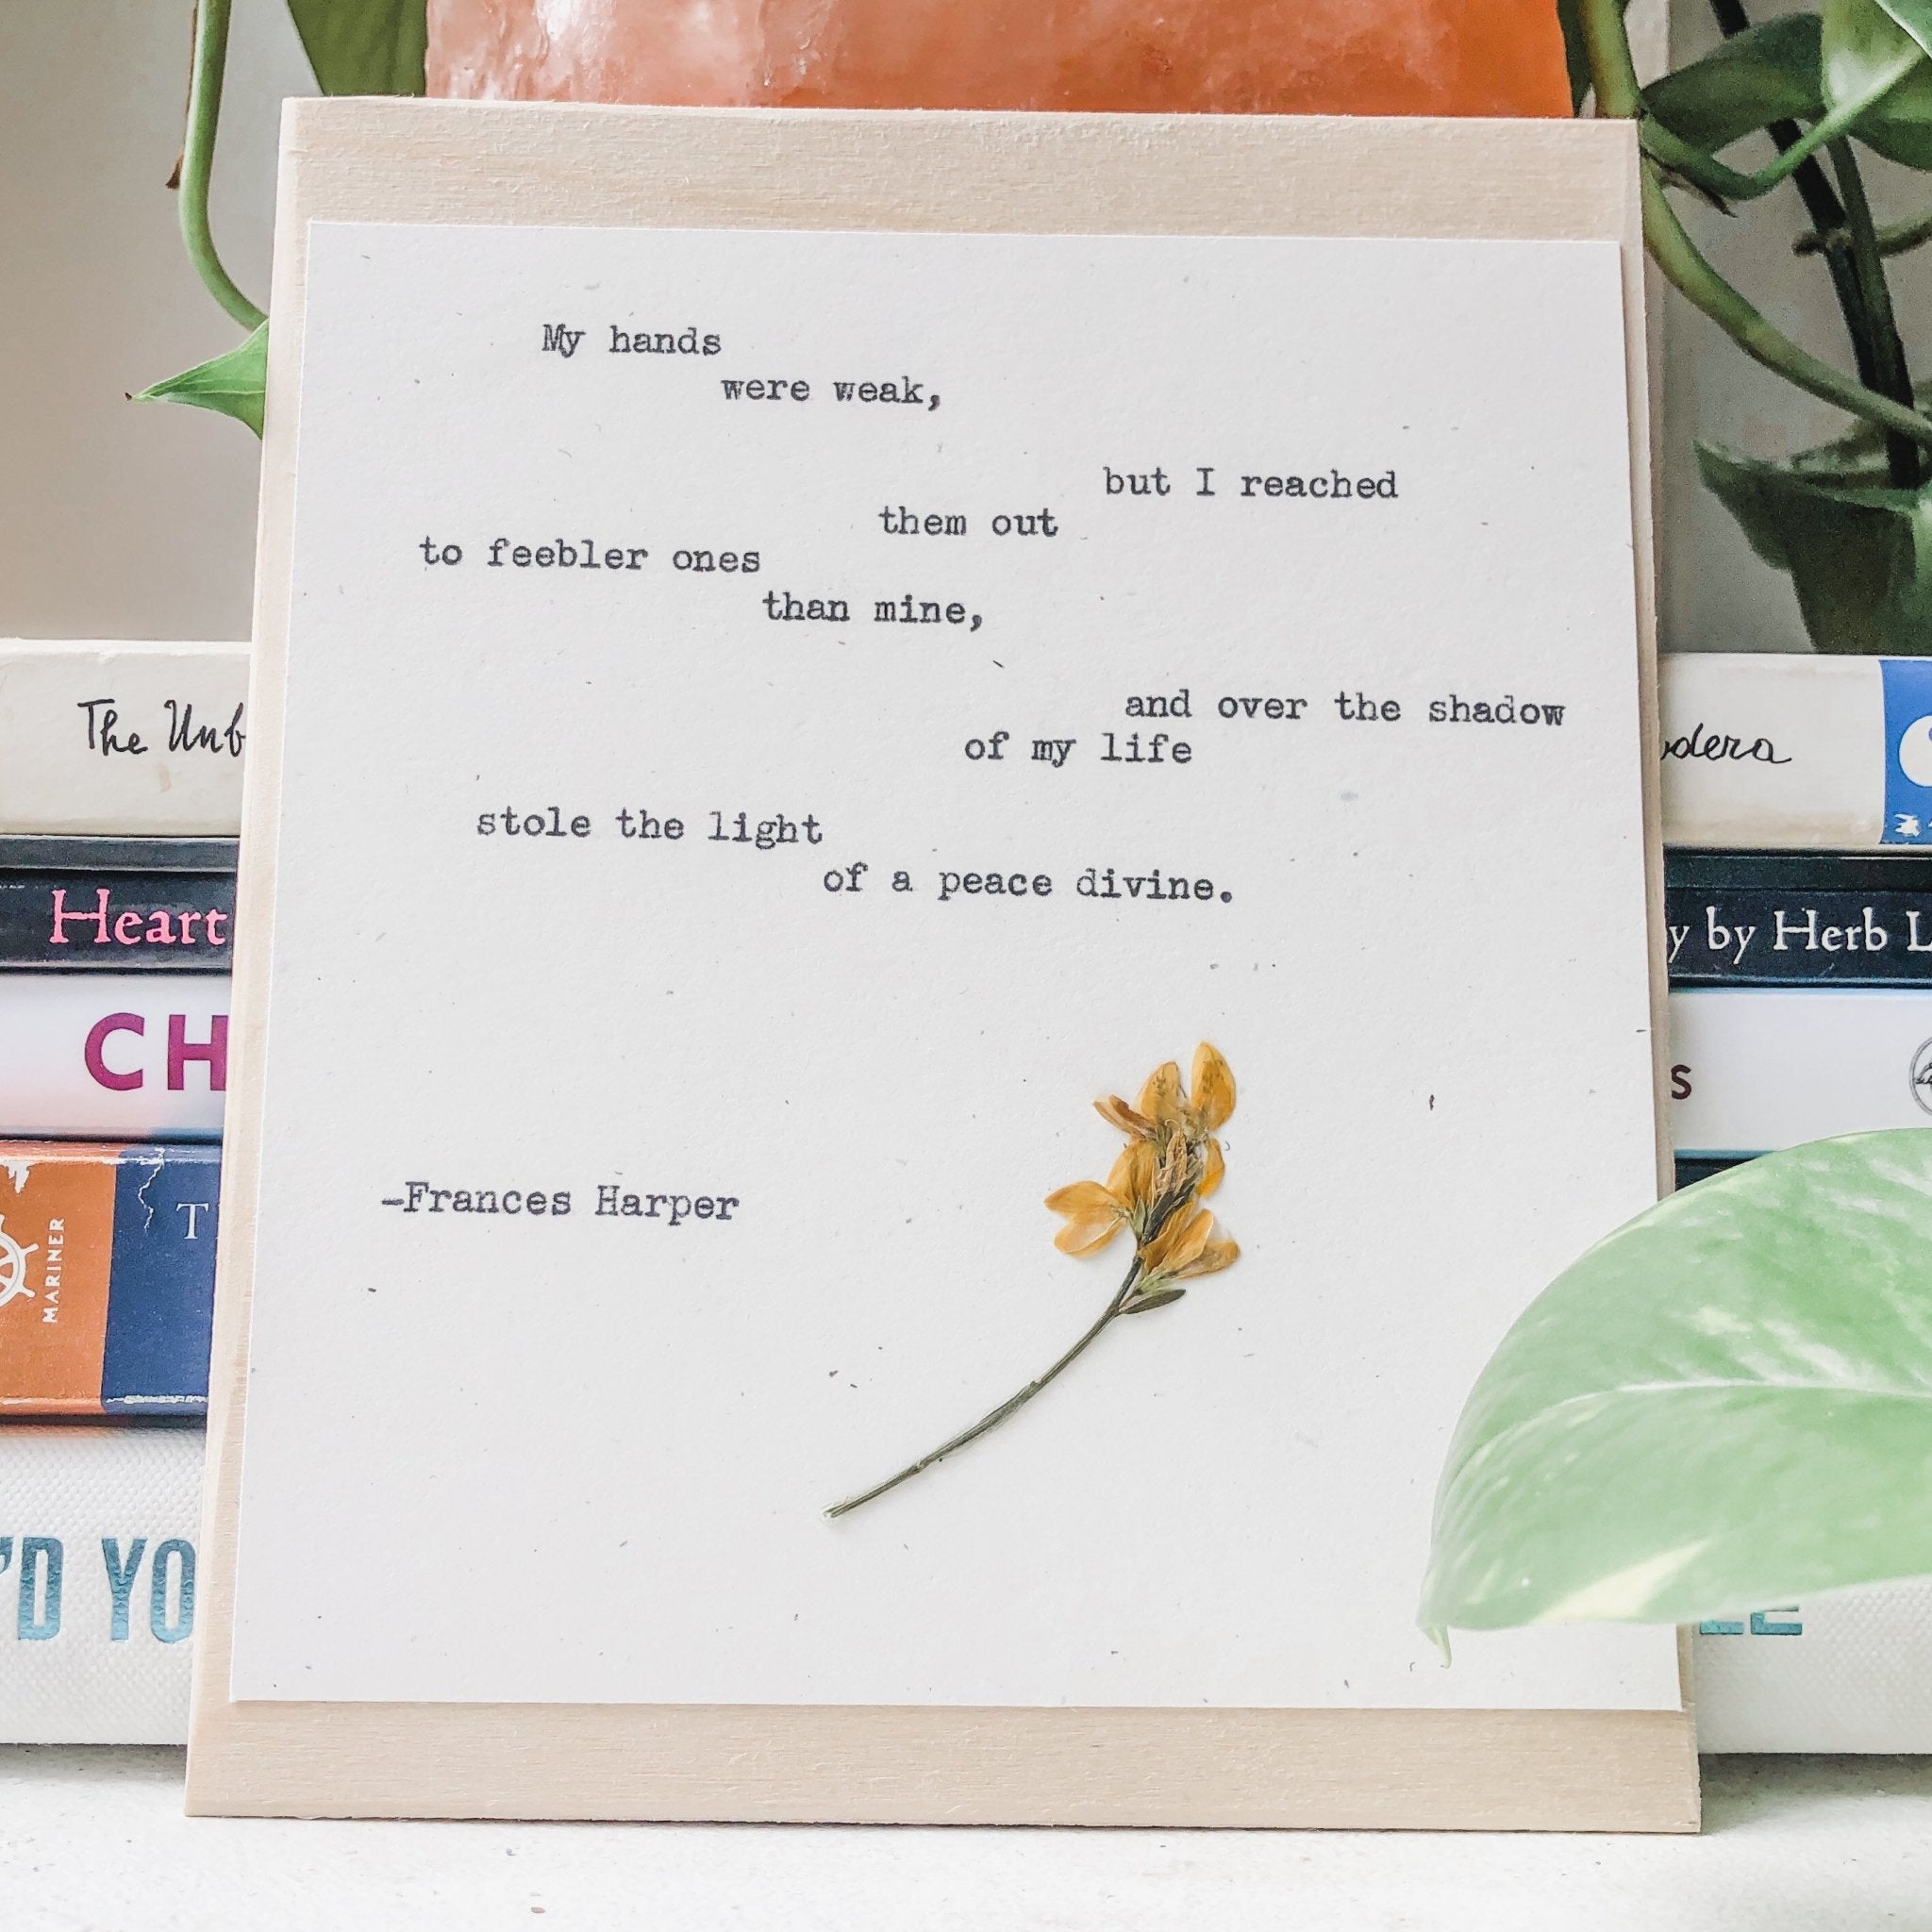 My hands
were weak,
but I reached
them out
to feebler ones
than mine,
and over the shadow
of my life
stole the light
of a peace divine.
-Frances Harper
The Unb
dera
Heart
y by Herb L
CH
s
MARINER
T
'D YO